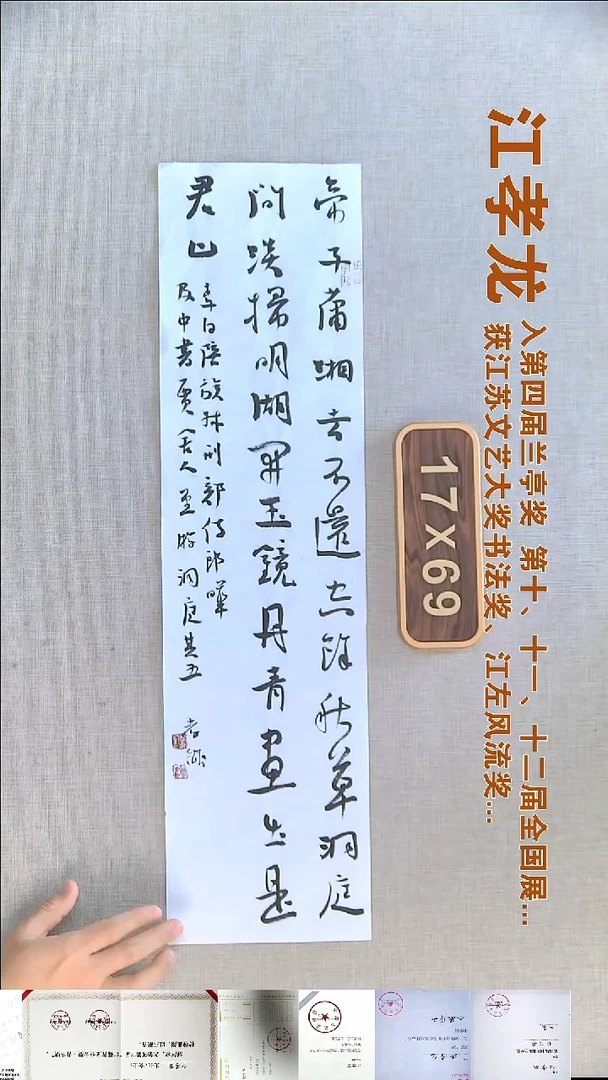 江孝龙
入第四届兰亭奖 第十、十一、十二届全国展...
获江苏文艺大奖书法奖、江左风流奖...
17x69
帝子瀟湘去不還空餘秋草洞庭
間淡掃明湖開玉鏡丹青畫出是
君山
李白陪族叔刑部侍郎曄
及中書賈舍人至游洞庭其五